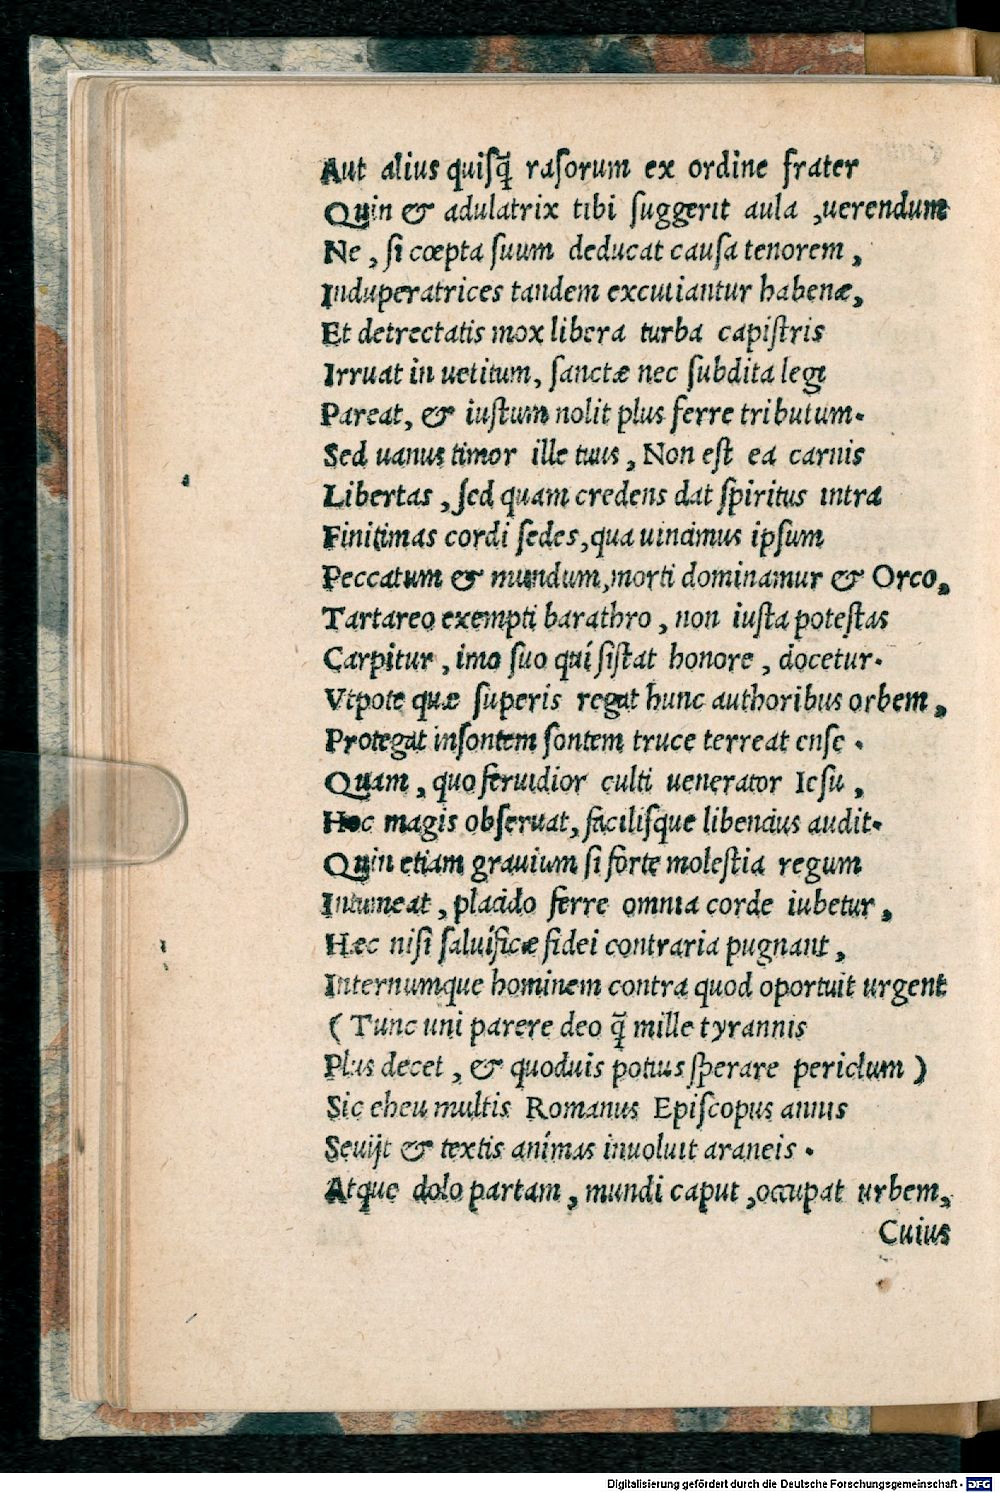 Aut alius quisq̃ rasorum ex ordine frater
Quin & adulatrix tibi suggerit aula ,uerendum
Ne , si cœpta suum deducat causa tenorem ,
Induperatrices tandem excutiantur habenæ,
Et detrectatis mox libera turba capistris
Irruat in uetitum, sanctæ nec subdita legi
Pareat, & iustum nolit plus ferre tributum.
Sed uanus timor ille tuus , Non est ea carnis
Libertas , sed quam credens dat spiritus intra
Finitimas cordi sedes,qua uincimus ipsum
Peccatum & mundum,morti dominamur & Orco,
Tartareo exempti barathro , non iusta potestas
Carpitur , imo suo qui sistat honore , docetur.
Vtpote quæ superis regat hunc authoribus orbem ,
Protegat insontem sontem truce terreat ense .
Quam , quo feruidior culti uenerator Iesu ,
Hoc magis obseruat, facilisque libentius audit.
Quin etiam grauium si forte molestia regum
Intumeat , placido ferre omnia corde iubetur ,
Hæc nisi saluificæ fidei contraria pugnant ,
Internumque hominem contra quod oportuit urgent
( Tunc uni parere deo q̃ mille tyrannis
Plus decet , & quoduis potius sperare periclum )
Sic eheu multis Romanus Episcopus annis
Seuijt & textis animas inuoluit araneis .
Atque dolo partam , mundi caput ,occupat urbem,
Cuius
Digitalisierung gefördert durch die Deutsche Forschungsgemeinschaft - DFG